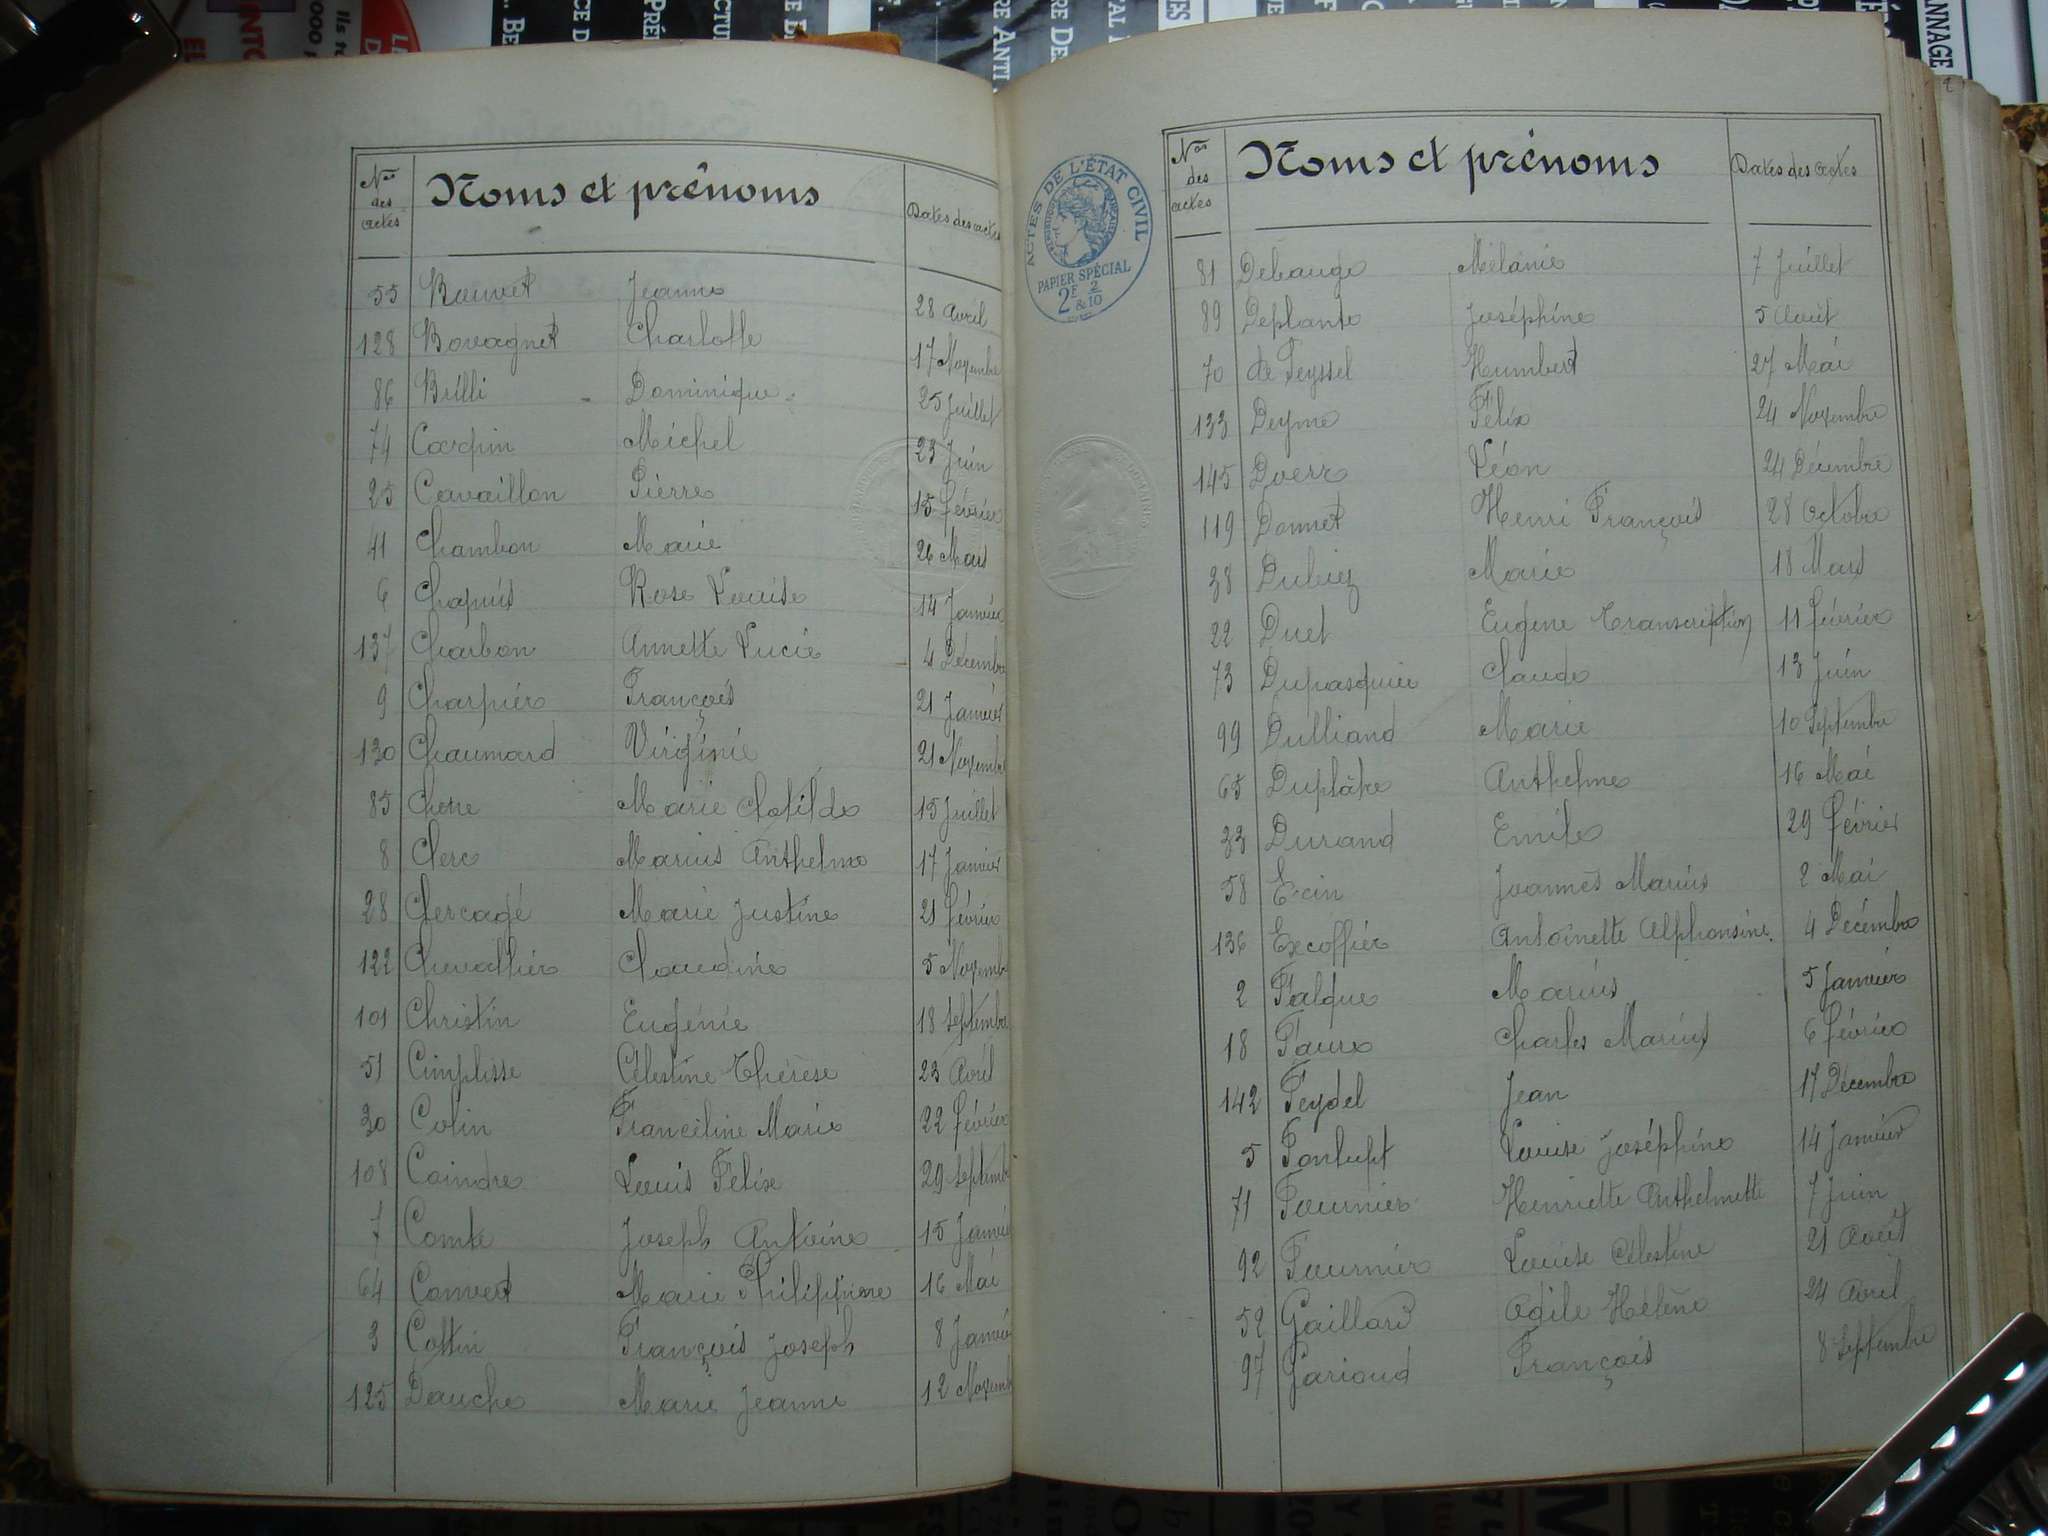 Nos des actes Noms et prénoms Dates des actes
55 Bouvet Jeanne 28 Avril
128 Bovagnet Charlotte 17 Novembre
86 Brilli Dominique 25 Juillet
74 Carpin Michel 23 Juin
25 Cavaillon Pierre 15 Février
41 Chambon Marie 26 Mars
6 Chapuis Rose Louise 14 Janvier
137 Charbon Annette Lucie 4 Décembre
9 Charpier François 21 Janvier
130 Chaumard Virginie 21 Novembre
85 Chene Marie Clotilde 15 Juillet
8 Clerc Marius Anthelme 17 Janvier
28 Clercagé Marie Justine 21 Février
122 Chevallier Claudine 5 Novemb
101 Christin Eugénie 18 Septembre
51 Cimplisse Célestine Thérèse 23 Avril
30 Colin Franceline Marie 22 Février
108 Coindre Louis Félix 29 Septemb
7 Comte Joseph Antoine 15 Janvie
64 Convert Marie Philippine 16 Mai
3 Cottin François Joseph 8 Janvie
125 Dauche Marie Jeanne 12 Novemb
ACTES DE L'ÉTAT CIVIL
PAPIER SPÉCIAL
2F 2/10
&
Nos des actes Noms et prénoms Dates des actes
81 Debauge Mélanie 7 Juillet
89 Deplante Joséphine 5 Août
70 de Seyssel Humbert 27 Mai
133 Deyme Félix 24 Novembre
145 Doerr Léon 24 Décembre
119 Donnet Henri François 28 Octobre
38 Dubiez Marie 18 Mars
22 Duet Eugène Transcription 11 Février
73 Dupasquier Claude 13 Juin
99 Dulliand Marie 10 Septembre
65 Duplâtre Anthelme 16 Mai
33 Durand Emile 29 Février
58 Ecin Joannès Marius 2 Mai
136 Excoffier Antoinette Alphonsine. 4 Décembre
2 Falque Marius 5 Janvier
18 Faure Charles Marius 6 Février
142 Feydel Jean 17 Décembre
5 Fonlupt Louise Joséphine 14 Janvier
71 Fournier Henriette Anthelmette 7 Juin
92 Fournier Louise Célestine 21 Août
52 Gaillard Odile Hélène 24 Avril
97 Garioud François 8 Septembre